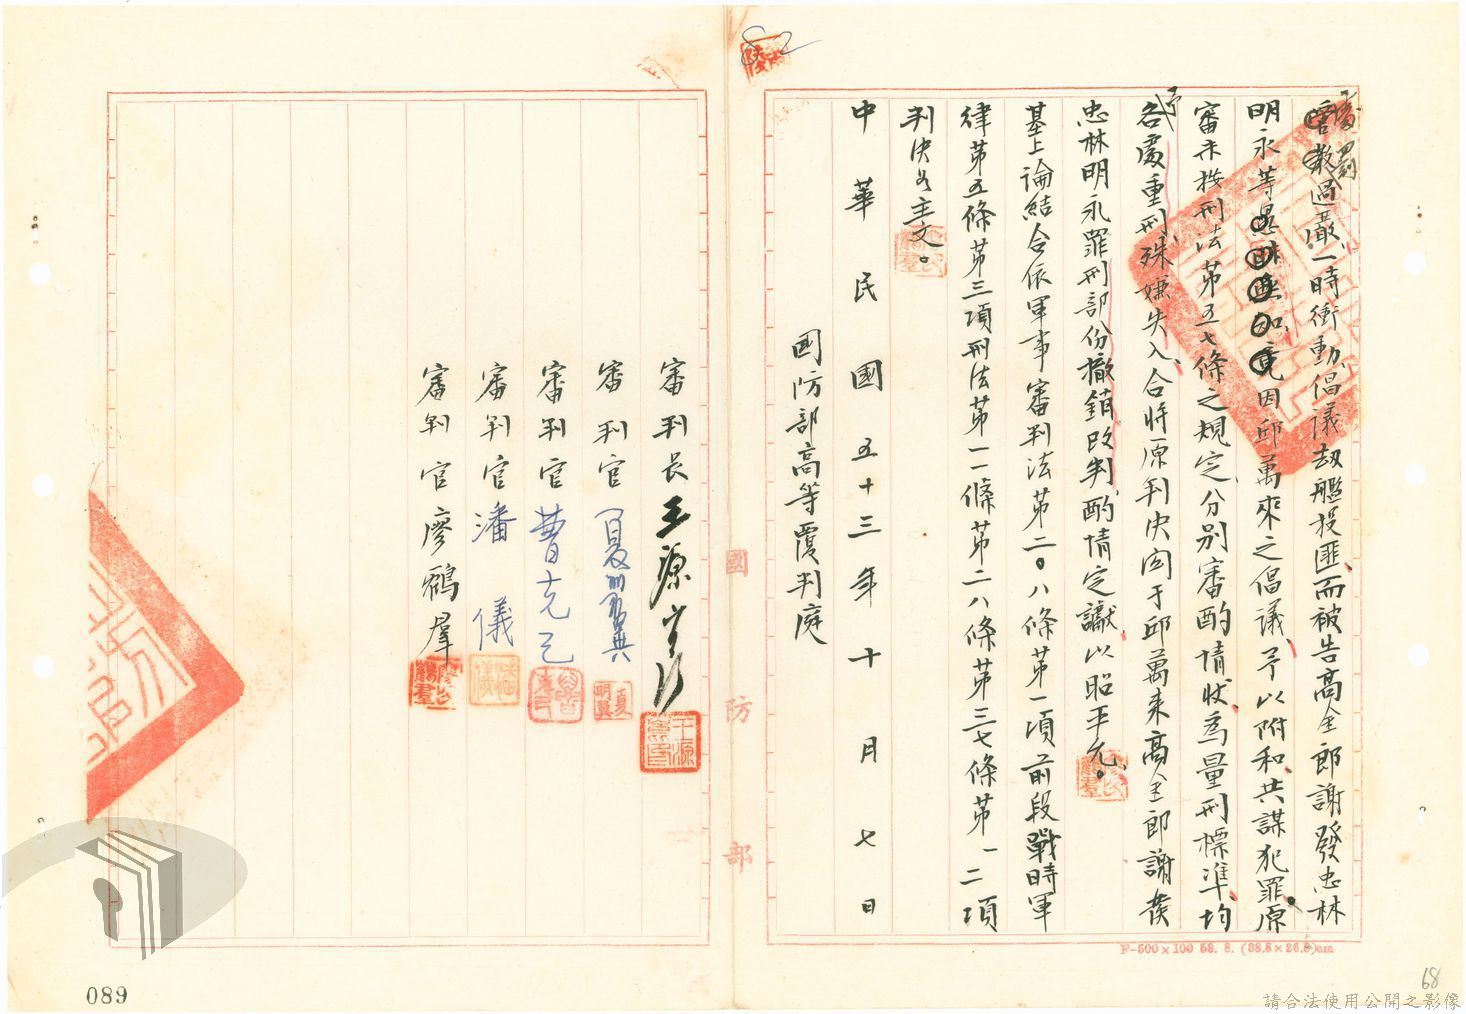 處罰
過嚴、一時衝動、倡議劫艦投匪、而被告高金郎謝發忠林
明永等竟因邱萬來之倡議、予以附和、共謀犯罪。原
審未按刑法第五七條之規定、分別審酌情狀、為量刑標準、均
予
各處重刑、殊嫌失入、合將原判決関于邱萬來高金郎謝發
忠林明永罪刑部份撤銷改判、酌情定讞、以昭平允。
基上論結合依軍事審判法第二〇八條第一項前段戰時軍
律第五條第三項刑法第一一條第二八條第三七條第一二項
判決如主文。
中華民國五十三年十月七日
國防部高等覆判庭
審判長王源
審判官夏明翼
審判官曹克己
審判官潘儀
審判官廖鶴羣
國防部
F-500×100 53. 8. (38.8×26.8)cm
089
68
82
請合法使用公開之影像